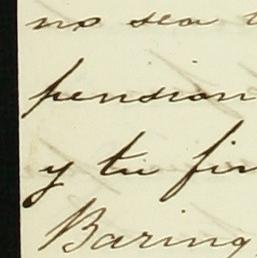 no sea
pension
y tu fin
Baring